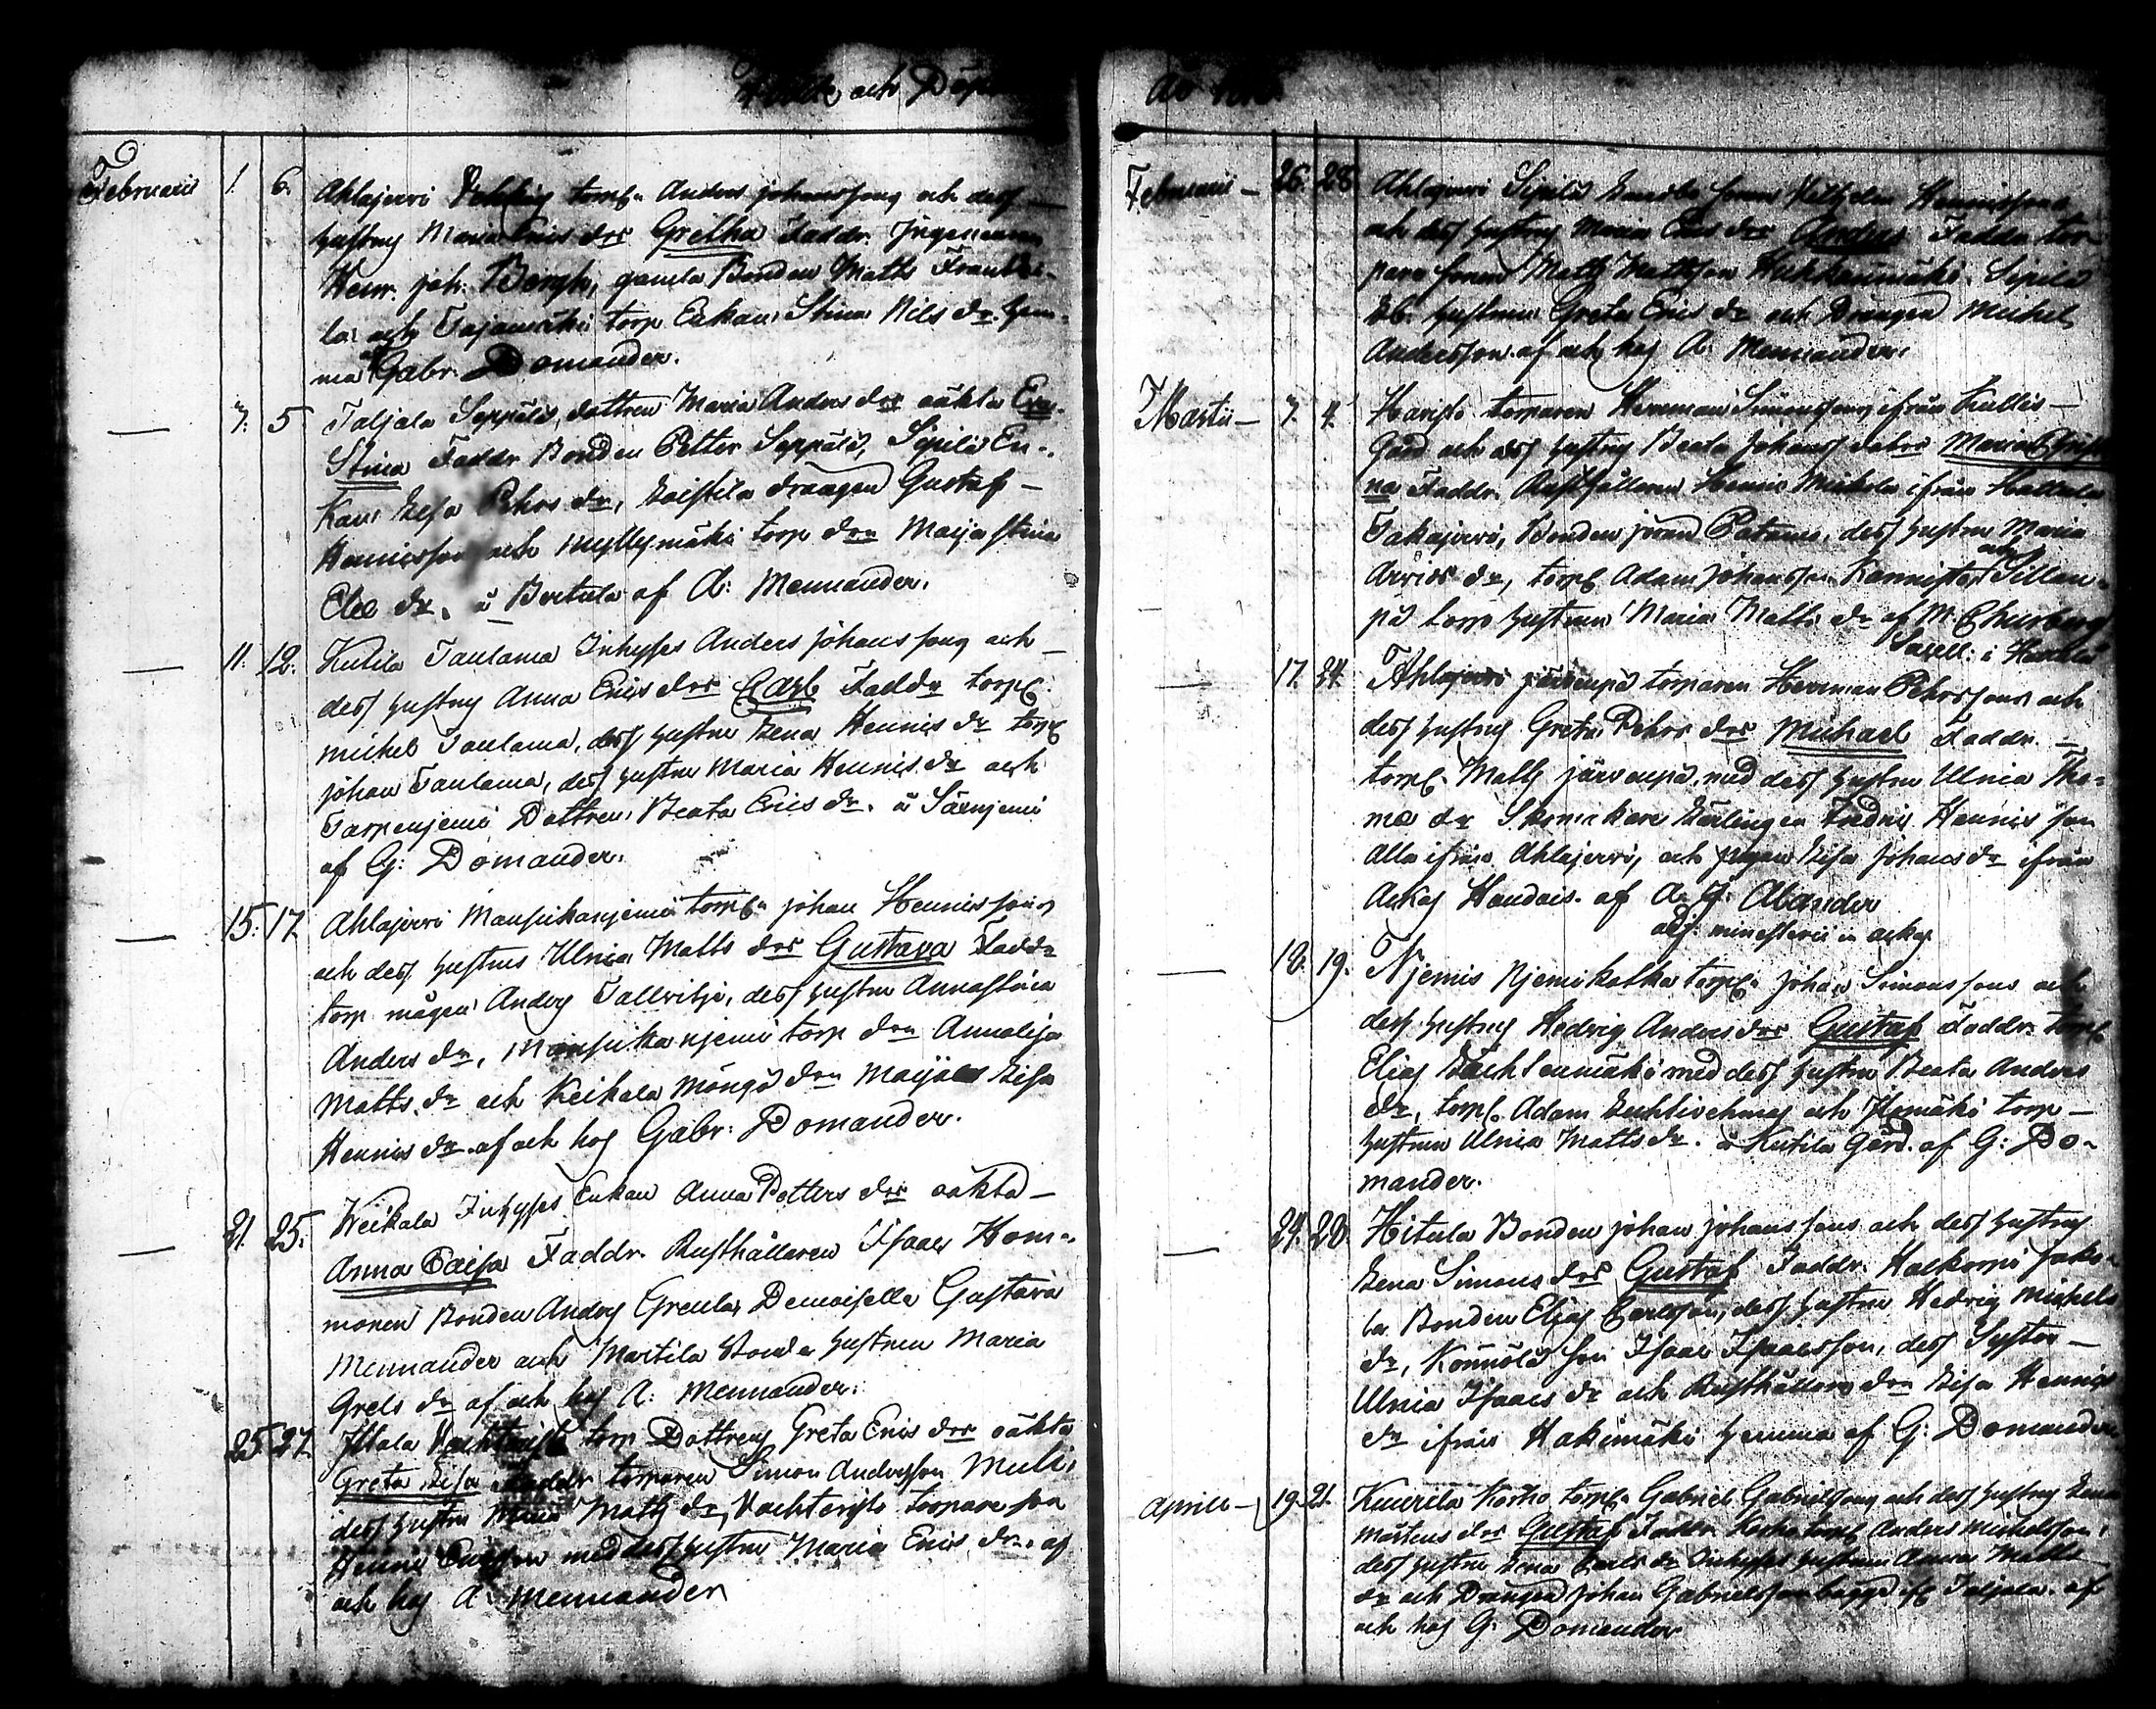 och Döp
Februarii 1. 6. Ahlajervi torp. Anders Johanssons och dess
hustrus Maria Erics drs Gretha Faddr. Jngenieuren
Henr. Joh: Bergh, gamla Bonden Matts Frantsi-
la och Tajamäki torp Enkan Stina Nils dr. hem-
ma af Gabr. Domander.
— 7. 5 Taljala Seppälä, dottren Maria Anders drs oäkta Eva
Stina Faddr Bonden Petter Seppälä, Sipilä En-
kan Lisa Pehrs dr, Loistila drängen Gustaf
Henricsson och Myllymäki torp drn Maija Stina
Elie dr. å Bertula af A: Mennander.
— 11. 12. Kutila Taulama Inhyses Anders Johanssons och
dess hustrus Anna Erics drs Carl Faddr torp.
Michel Taulama, dess hustru Lena Henrics dr torp.
Johan Taulama, dess hustru Maria Henrics dr och
Tarpenjemi Dottren Beata Erics dr. å Särnjemi
af G: Domander.
— 15. 17. Ahlajervi Mansikanjemi torp. Johan Henrics sons
och dess hustrus Ulrica Matts drs Gustava Faddr
torp mågen Anders Tallvitje, dess hustru Annastina
Anders dr, Mansikanjemi torp drn Annalisa
Matts dr och Keikala drn Maija Lisa
Henrics dr af och hos Gabr: Domander.
— 21. 25. Keikala Inhyses Enkan Anna Petters drs oäkta
Anna Caisa Faddr. Rusthållaren Isaac Hom-
monen Bonden Anders Grenla, Demoiselle Gustava
Mennander och Martila Bonde hustrun Maria
Grels dr af och hos A: Mennander.
25. 27. Ittala torp Dottrens Greta Erics drs oäkta
Greta Lisa Faddr torparen Simon Andersson
dess hustru Maria Matts dr, torpare son
Henric Ericsson med dess hustru Maria Erics dr. af
och hos A Mennander
Februarii — 26. 28. Ahlajervi Sipilä sonens Vilhelm Henricssons
och dess hustrus Maria Erics drs Anders Faddr tor-
pare sonen Matts Mattsson Sipilä
hustrun Greta Erics dr och Drängen Michel
Andersson af och hos A: Mennander.
Martii — 7. 4. Haristo torparen Herrman Simonssons ifrån Kullis-
gård och dess hustrus Beata Johans drs Maria Christi
na Faddr. Rusthållaren Henric Mickola ifrån Hattula
Takajervi, Bonden Jöran Patama, dess hustru Maria
Arvids dr, torp. Adam Johansson Kannisto, och Sillan-
pä torp hustrun Maria Matts dr af M. Churberg
Sacell: i
— 17. 24. Ahlajervi järvenpä torparen Herrman Pehrssons och
dess hustrus Greta Pehrs drs Michael Faddr.
torp. Matts järvenpä, med dess hustru Ulrica Tho-
mæ dr Skomakare Lärlingen Fredric Henrics son
Alla ifrån Ahlajervi, och pigan Lisa Johans dr ifrån
Ackas af A. J. Alander
adj: ministerii in ackas
— 18. 19. Njemis Njemikotka torp. Johan Simonssons och
dess hustrus Hedvig Anders drs Gustaf Faddr. torp.
Elias med dess hustru Beata Anders
dr, torp. Adam och torp
hustrun Ulrica Matts dr. å Kutila Gård. af G: Do-
mander.
— 24. 28. Hitula Bonden Johan Johanssons och dess hustrus
Lena Simons drs Gustaf Faddr. Halkorpi Jako-
la Bonden Elias Carlsson, dess hustru Hedvig Michels
dr, Konnolä son Isaac Isaacsson, dess Syster
Ulrica Isaacs dr och Rusthållare drn Lisa Henrics
dr ifrån Hakimäki hemma af G: Domander
Aprilis — 19. 21. Kuurila Korko torp. Gabriel Gabrielssons och dess hustrus Lena
Mårtens drs Gustaf Faddr. Korko torp. Anders Michelsson,
dess hustru Lena Carls dr Inhyses hustrun Anna Matts
dr och Drängen Johan Gabrielsson Taljala af
och hos G: Domander